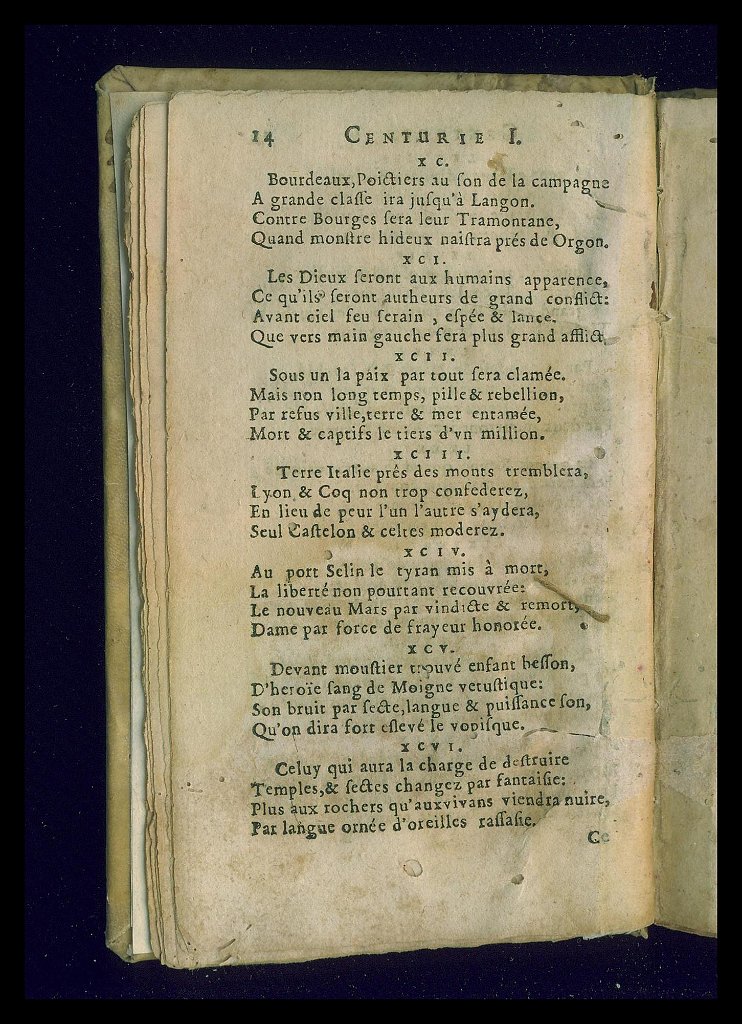 14 CENTURIE I.
XC.
Bourdeaux, Poictiers au ſon de la campagne
A grande claſſe ira juſqu'à Langon.
Contre Bourges ſera leur Tramontane,
Quand monſtre hideux naiſtra prés de Orgon.
XCI.
Les Dieux ſeront aux humains apparence,
Ce qu'ils ſeront autheurs de grand conflict:
Avant ciel feu ſerain, eſpée & lance.
Que vers main gauche ſera plus grand afflict.
XCII.
Sous un la paix par tout ſera clamée.
Mais non long temps, pille & rebellion,
Par refus ville, terre & mer entamée,
Mort & captifs le tiers d'vn million.
XCIII.
Terre Italie prés des monts tremblera,
Lyon & Coq non trop confederez,
En lieu de peur l'un l'autre s'aydera,
Seul Caſtelon & celtes moderez.
XCIV.
Au port Selin le tyran mis à mort,
La liberté non pourtant recouvrée:
Le nouveau Mars par vindicte & remort,
Dame par force de frayeur honorée.
XCV.
Devant mouſtier trouvé enfant beſſon,
D'heroïe ſang de Moigne vetuſtique:
Son bruit par ſecte, langue & puiſſance ſon,
Qu'on dira fort eſlevé le vopiſque.
XCVI.
Celuy qui aura la charge de deſtruire
Temples, & ſectes changez par fantaiſie:
Plus aux rochers qu'aux vivans viendra nuire,
Par langue ornée d'oreilles raſſaſie.
Ce